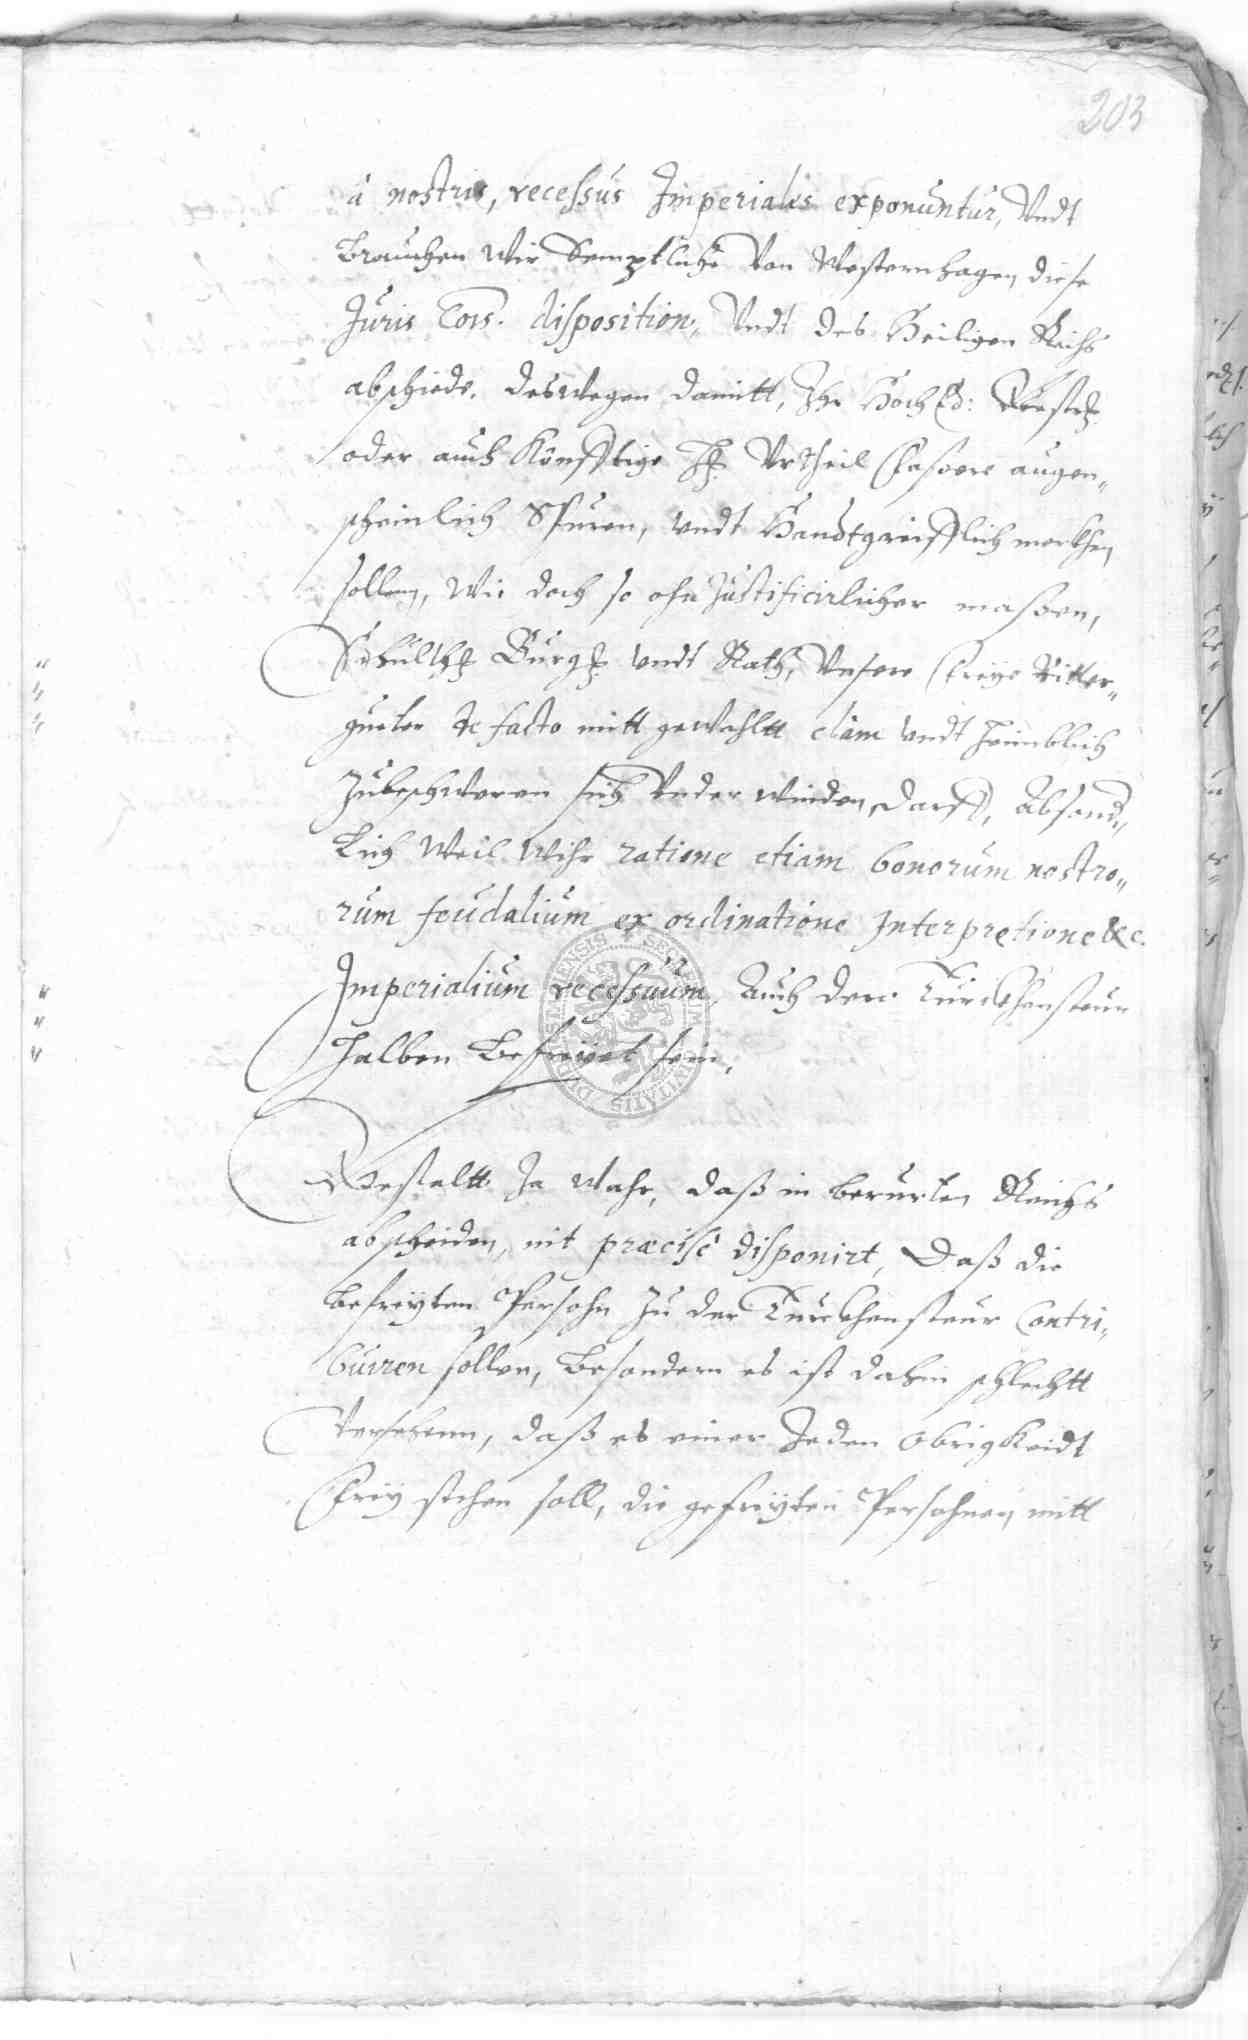 203
á nostris, recessus Imperiales exponuntur, Vndt
brauchen wir Semptliche von Westernhagen diese
Juris Cois. disposition, Vndt des Heiligen Reichs
abschiede, deswegen damitt, Ihr Hoch Ed: Vest
oder auch Könfftige Urtheil Chassere augen„
scheinlich Spuren, vndt Handtgreifflich merkhen
sollen, wie doch so ohn Justificirlicher massen,
Schulth Burg vndt Rath, Vnsere Freye Ritter„
gueter de facto mitt gewahltt clam vndt heimblich
Zubeschweren sich Vnder winden darff, Absond„
lich weil wihr ratione etiam bonorum nostro„
rum feudalium ex ordinatione Interpretione &c.
Imperialium recessuum, Auch der Türckhensteur
halben Befreyet sein,
Gestaltt Ja wahr, daß in berurten Reichs
abscheiden, nit præcisé disponirt, Daß die
befreyten Persohn zu der Turckhensteur Contri„
buiren sollen, Besondern es ist dahin schlechtt
versehenn, daß es einer Jeden Obrigkeidt
Frey stehen soll, die gefreyten Persohnen mitt
SECRETUM CIVITATIS